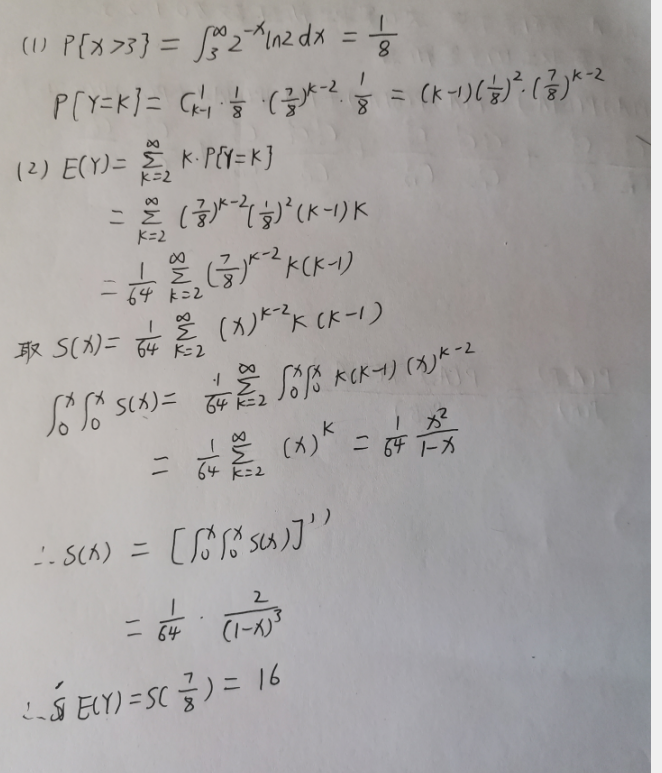 (1) P{X>3} = ∫₃^∞ 2^{-x} ln2 dx = 1/8
P{Y=K} = C_{K-1}^1 · 1/8 · (7/8)^{K-2} · 1/8 = (K-1)(1/8)^2 · (7/8)^{K-2}
(2) E(Y) = ∑_{K=2}^∞ K·P{Y=K}
= ∑_{K=2}^∞ (7/8)^{K-2} (1/8)^2 (K-1)K
= 1/64 ∑_{K=2}^∞ (7/8)^{K-2} K(K-1)
取 S(x) = 1/64 ∑_{K=2}^∞ (x)^{K-2} K(K-1)
∫₀^x ∫₀^x S(x) = 1/64 ∑_{K=2}^∞ ∫₀^x ∫₀^x K(K-1) (x)^{K-2}
= 1/64 ∑_{K=2}^∞ (x)^K = 1/64 x²/(1-x)
∴ S(x) = [∫₀^x ∫₀^x S(x)]''
= 1/64 · 2/(1-x)^3
∴ E(Y) = S(7/8) = 16